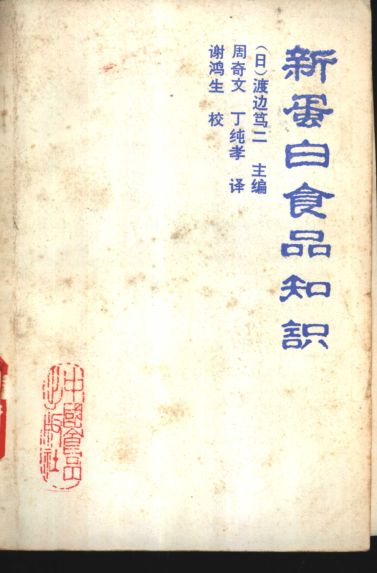 新蛋白食品知識
（日）渡边笃二 主编
周奇文 丁纯孝 译
谢鸿生 校
中國食品
出版社